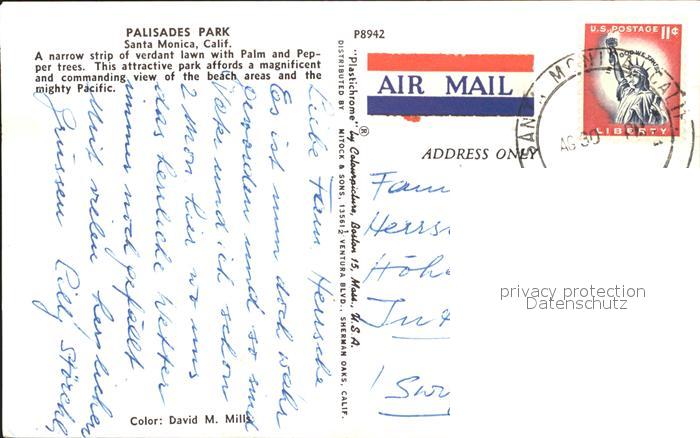 PALISADES PARK
Santa Monica, Calif.
A narrow strip of verdant lawn with Palm and Pep-
per trees. This attractive park affords a magnificent
and commanding view of the beach areas and the
mighty Pacific.
P8942
AIR MAIL
U.S. POSTAGE 11¢
IN GOD WE TRUST
LIBERTY
SANTA MONICA CALIF
AG 30
ADDRESS ONLY
"Plastichrome" ® by Colourpicture, Boston 15, Mass., U.S.A.
DISTRIBUTED BY MITOCK & SONS, 13561½ VENTURA BLVD., SHERMAN OAKS, CALIF.
Liebe Fam Herrsche
Es ist nun doch wahr
geworden und so sind
Jakr und ich schon
2 Mon hier wo uns
das herrliche Wetter
immer noch gefällt
Mit vielen herzlichen
Grüssen Lilly
Fam
Herrs
Höh
privacy protection
Datenschutz
Color: David M. Mills